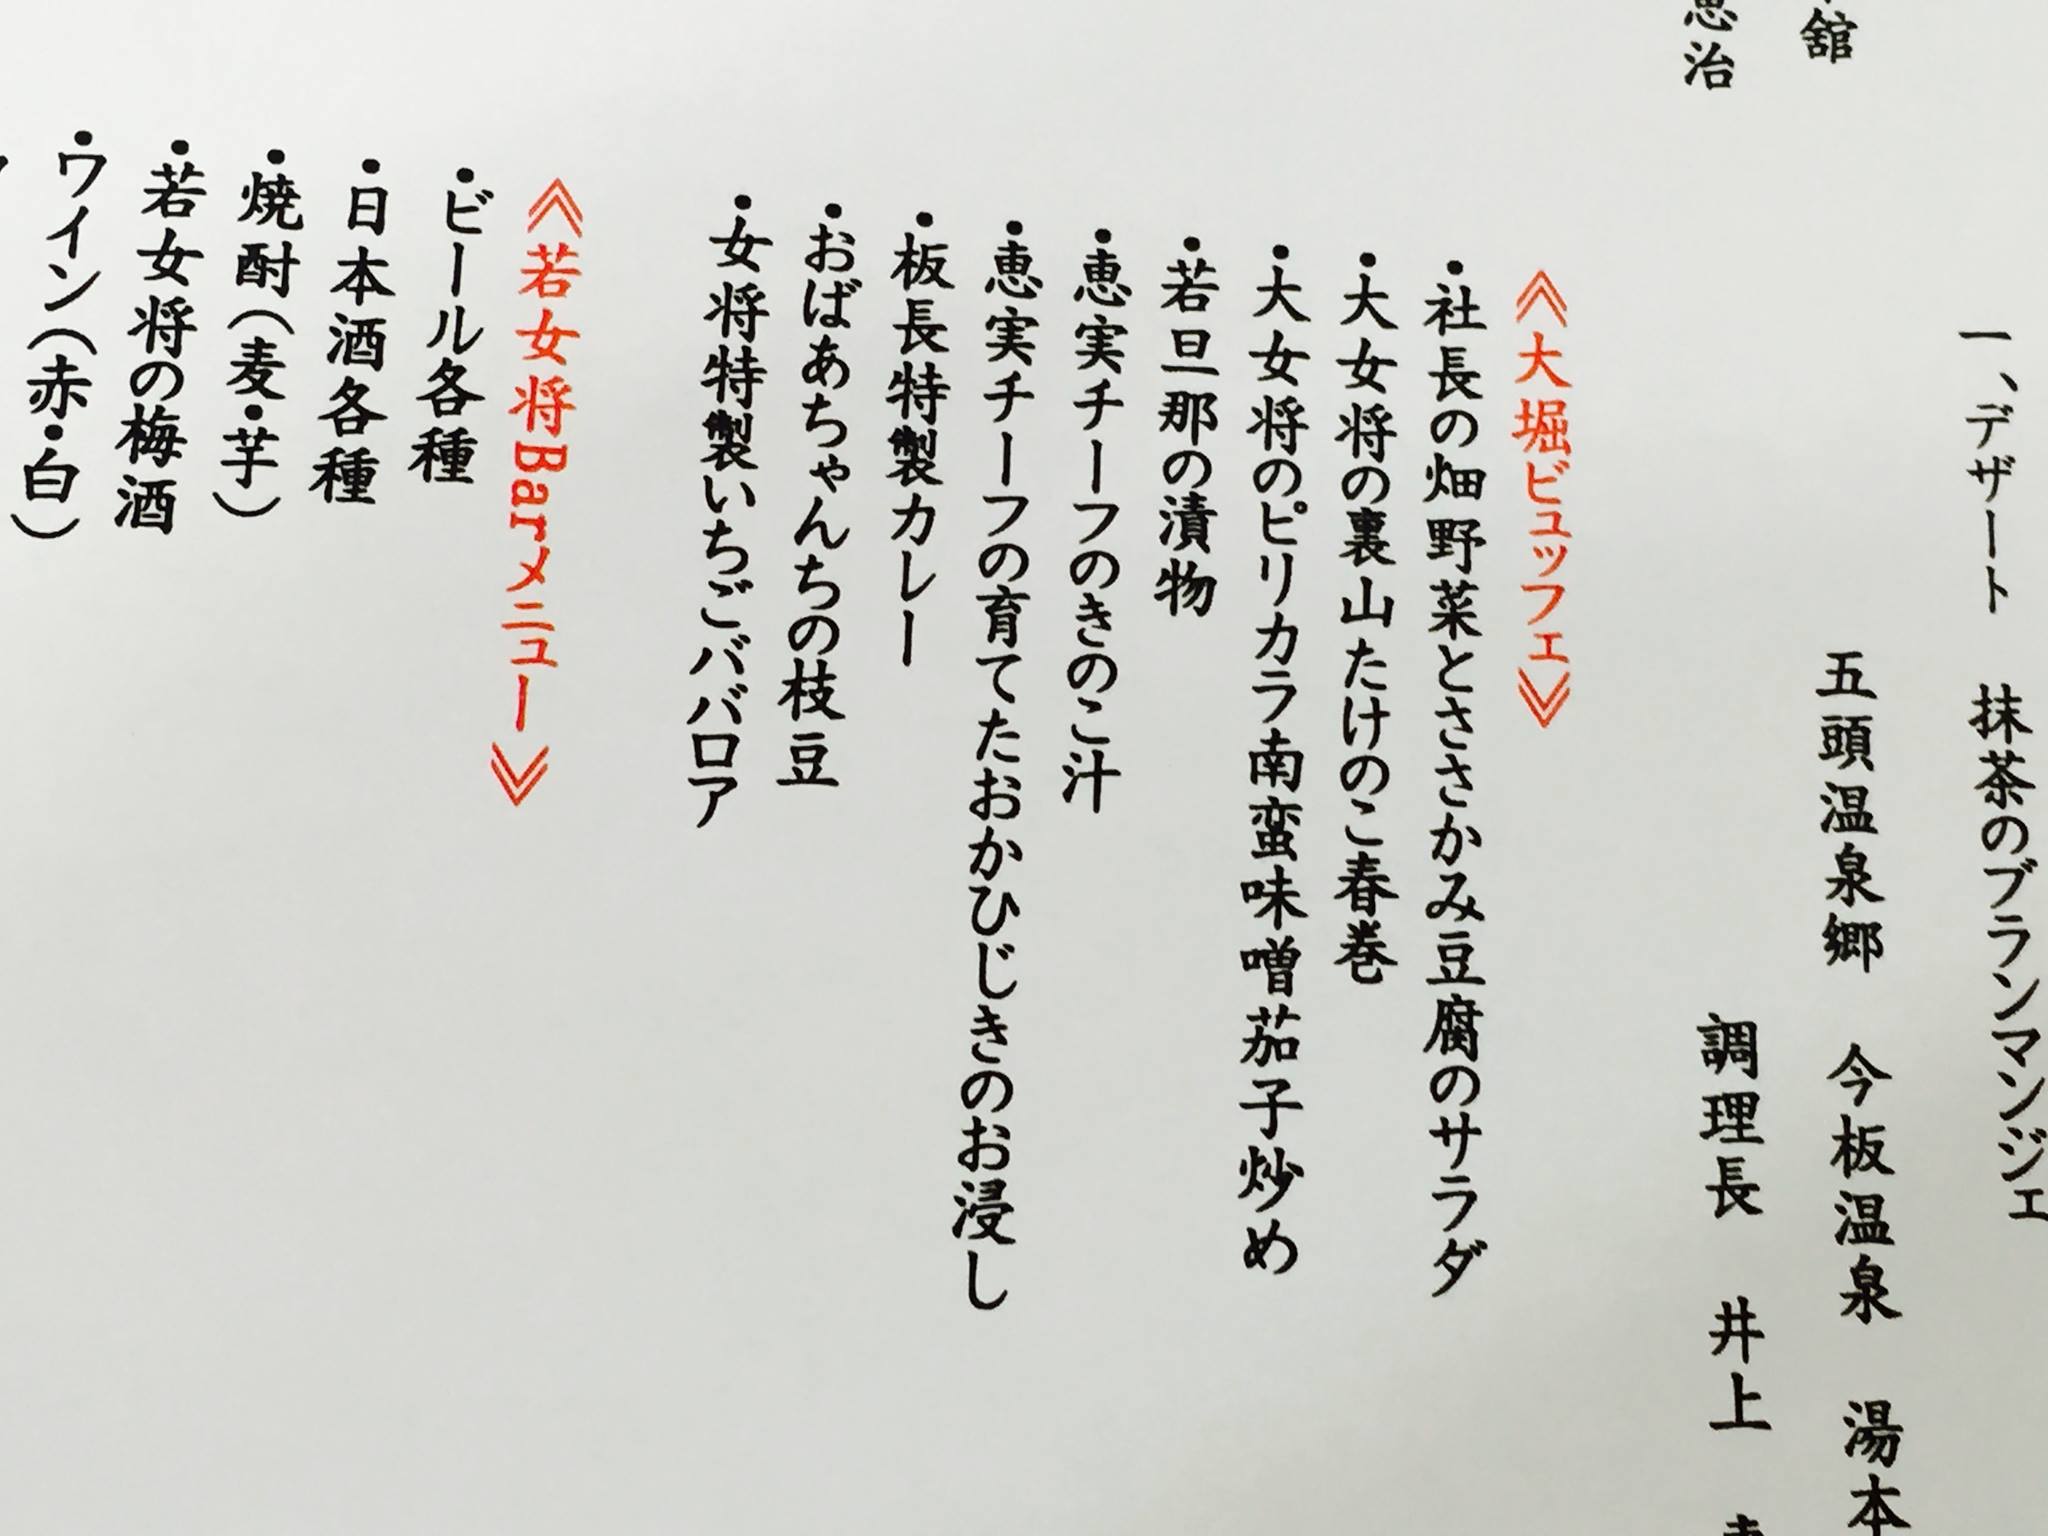 一、デザート　抹茶のブランマンジェ
五頭温泉郷　今板温泉　湯本
舘
調理長　井上
恵治
≪大堀ビュッフェ≫
・社長の畑野菜とささかみ豆腐のサラダ
・大女将の裏山たけのこ春巻
・大女将のピリカラ南蛮味噌茄子炒め
・若旦那の漬物
・恵実チーフのきのこ汁
・恵実チーフの育てたおかひじきのお浸し
・板長特製カレー
・おばあちゃんちの枝豆
・女将特製いちごババロア
≪若女将Barメニュー≫
・ビール各種
・日本酒各種
・焼酎（麦・芋）
・若女将の梅酒
・ワイン（赤・白）